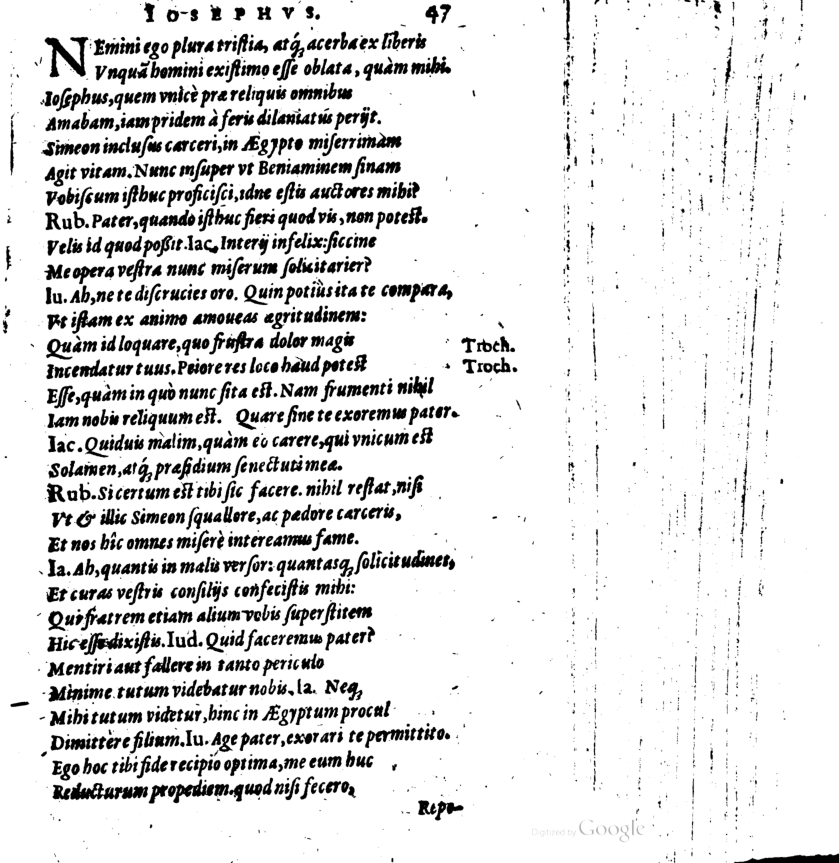 IOSEPHVS. 47
NEmini ego plura tristia, atq́; acerba ex liberis
Vnquã homini existimo esse oblata, quàm mihi.
Iosephus, quem vnicè præ reliquis omnibus
Amabam, iampridem à feris dilaniatus perijt.
Simeon inclusus carceri, in Ægypto miserrimam
Agit vitam. Nunc insuper vt Beniaminem sinam
Vobiscum isthuc proficisci, idne estis auctores mihi?
Rub. Pater, quando isthuc fieri quod vis, non potest.
Velis id quod poßit. Iac. Interij infelix: siccine
Me opera vestra nunc miserum solicitarier?
Iu. Ah, ne te discrucies oro. Quin potiùs ita te compara,
Vt istam ex animo amoueas ægritudinem:
Quàm id loquare, quo frustra dolor magis Troch.
Incendatur tuus. Peiore res loco haud potest Troch.
Esse, quàm in quò nunc sita est. Nam frumenti nihil
Iam nobis reliquum est. Quare sine te exoremus pater.
Iac. Quiduis malim, quàm eo carere, qui vnicum est
Solamen, atq́; præsidium senectuti meæ.
Rub. Si certum est tibi sic facere. nihil restat, nisi
Vt & illic Simeon squallore, ac pædore carceris,
Et nos hîc omnes miserè intereamus fame.
Ia. Ah, quantis in malis versor: quantasq; solicitudines,
Et curas vestris consilijs confecistis mihi:
Qui fratrem etiam alium vobis superstitem
Hic esse dixistis. Iud. Quid faceremus pater?
Mentiri aut fallere in tanto periculo
Minime tutum videbatur nobis. Ia. Neq;
Mihi tutum videtur, hinc in Ægyptum procul
Dimittere filium. Iu. Age pater, exorari te permittito.
Ego hoc tibi fide recipio optima, me eum huc
Reducturum propediem. quod nisi fecero,
Repo-
Digitized by Google